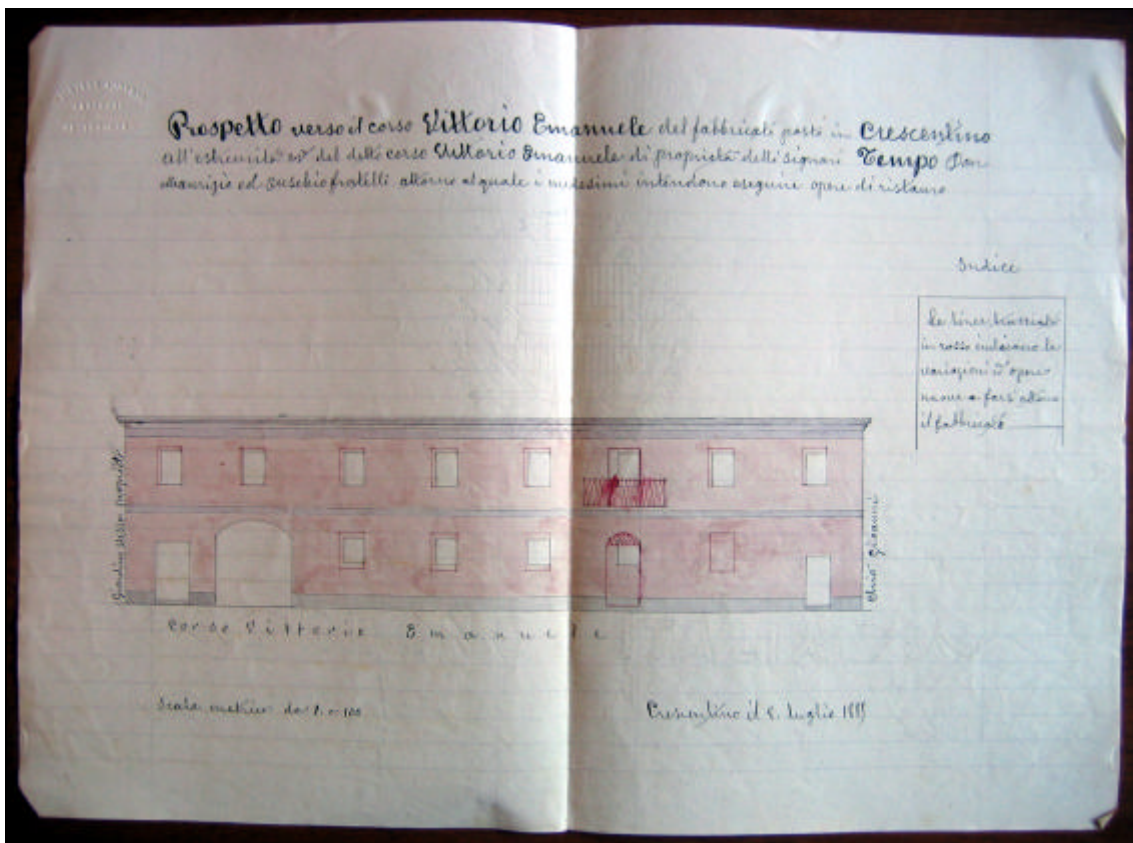 Prospetto verso il corso Vittorio Emanuele del fabbricati posti in Crescentino
all'estremità del detto corso Vittorio Emanuele di proprietà delli Signori Tempo Don
Maurizio ed Eusebio fratelli attorno al quale i medesimi intendono eseguire opere di ristauro
Indice
Le linee tracciate
in rosso indicano le
variazioni ed opere
nuove a farsi attorno
il fabbricato
Giovanni
Corso Vittorio Emanuele
Scala metrica da 1 a 100
Crescentino il luglio